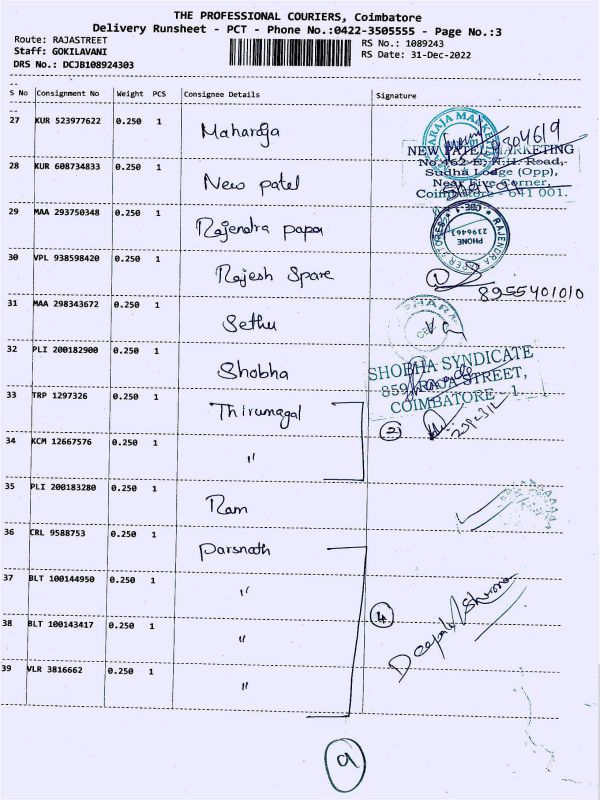 THE PROFESSIONAL COURIERS, Coimbatore
Delivery Runsheet - PCT - Phone No.:0422-3505555 - Page No.:3
Route: RAJASTREET
RS No.: 1089243
Staff: GOKILAVANI
RS Date: 31-Dec-2022
DRS No.: DCJB108924303
S No Consignment No Weight PCS Consignee Details Signature
27 KUR 523977622 0.250 1 Maharaja
28 KUR 608734833 0.250 1 New patel
NEW PATEL MARKETING
No.462-E, N.H. Road,
Sudha Lodge (Opp),
Near Five Corner,
Coimbatore - 641 001.
29 MAA 293750348 0.250 1 Rajendra paper
PHONE
2396462
30 VPL 938598420 0.250 1 Rajesh Spare
8955401010
31 MAA 298343672 0.250 1 Sethu
32 PLI 200182900 0.250 1 Shobha
SHOBHA SYNDICATE
859, RAJA STREET,
COIMBATORE - 1
33 TRP 1297326 0.250 1 Thirumagal
2
34 KCM 12667576 0.250 1 "
35 PLI 200183280 0.250 1 Ram
36 CRL 9588753 0.250 1 Parsnath
37 BLT 100144950 0.250 1 "
4
38 BLT 100143417 0.250 1 "
39 VLR 3816662 0.250 1 "
9